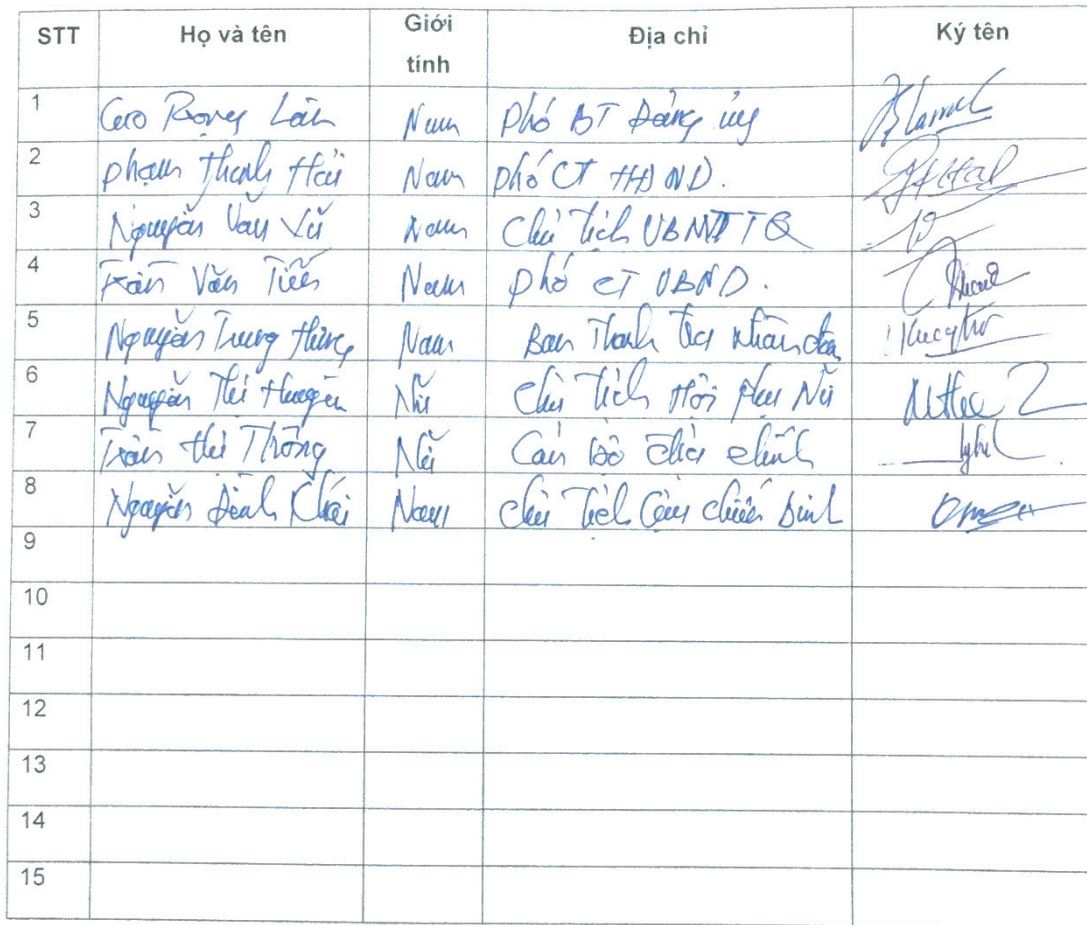 STT Họ và tên Giới tính Địa chỉ Ký tên
1 Lân Nam Phó BT Đảng ủy
2 Phạm Thanh Hải Nam Phó CT HĐND.
3 Nguyễn Văn Vũ Nam Chủ tịch UBMTTQ
4 Trần Văn Tiến Nam Phó CT UBND.
5 Nguyễn Trung Hưng Nam Ban Thanh tra nhân dân
6 Nguyễn Thị Nữ Chủ tịch Hội Phụ Nữ
7 Trần thị Thông Nữ Cán bộ địa chính
8 Nguyễn Đình Nam Chủ tịch Cựu chiến binh
9
10
11
12
13
14
15